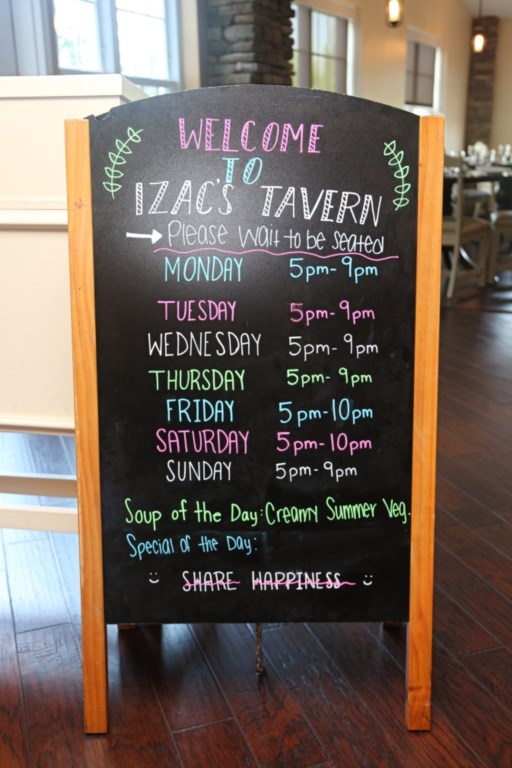 WELCOME
TO
IZAC'S TAVERN
→ Please Wait to be Seated
MONDAY 5pm-9pm
TUESDAY 5pm-9pm
WEDNESDAY 5pm-9pm
THURSDAY 5pm-9pm
FRIDAY 5pm-10pm
SATURDAY 5pm-10pm
SUNDAY 5pm-9pm
Soup of the Day: Creamy Summer Veg.
Special of the Day:
SHARE HAPPINESS